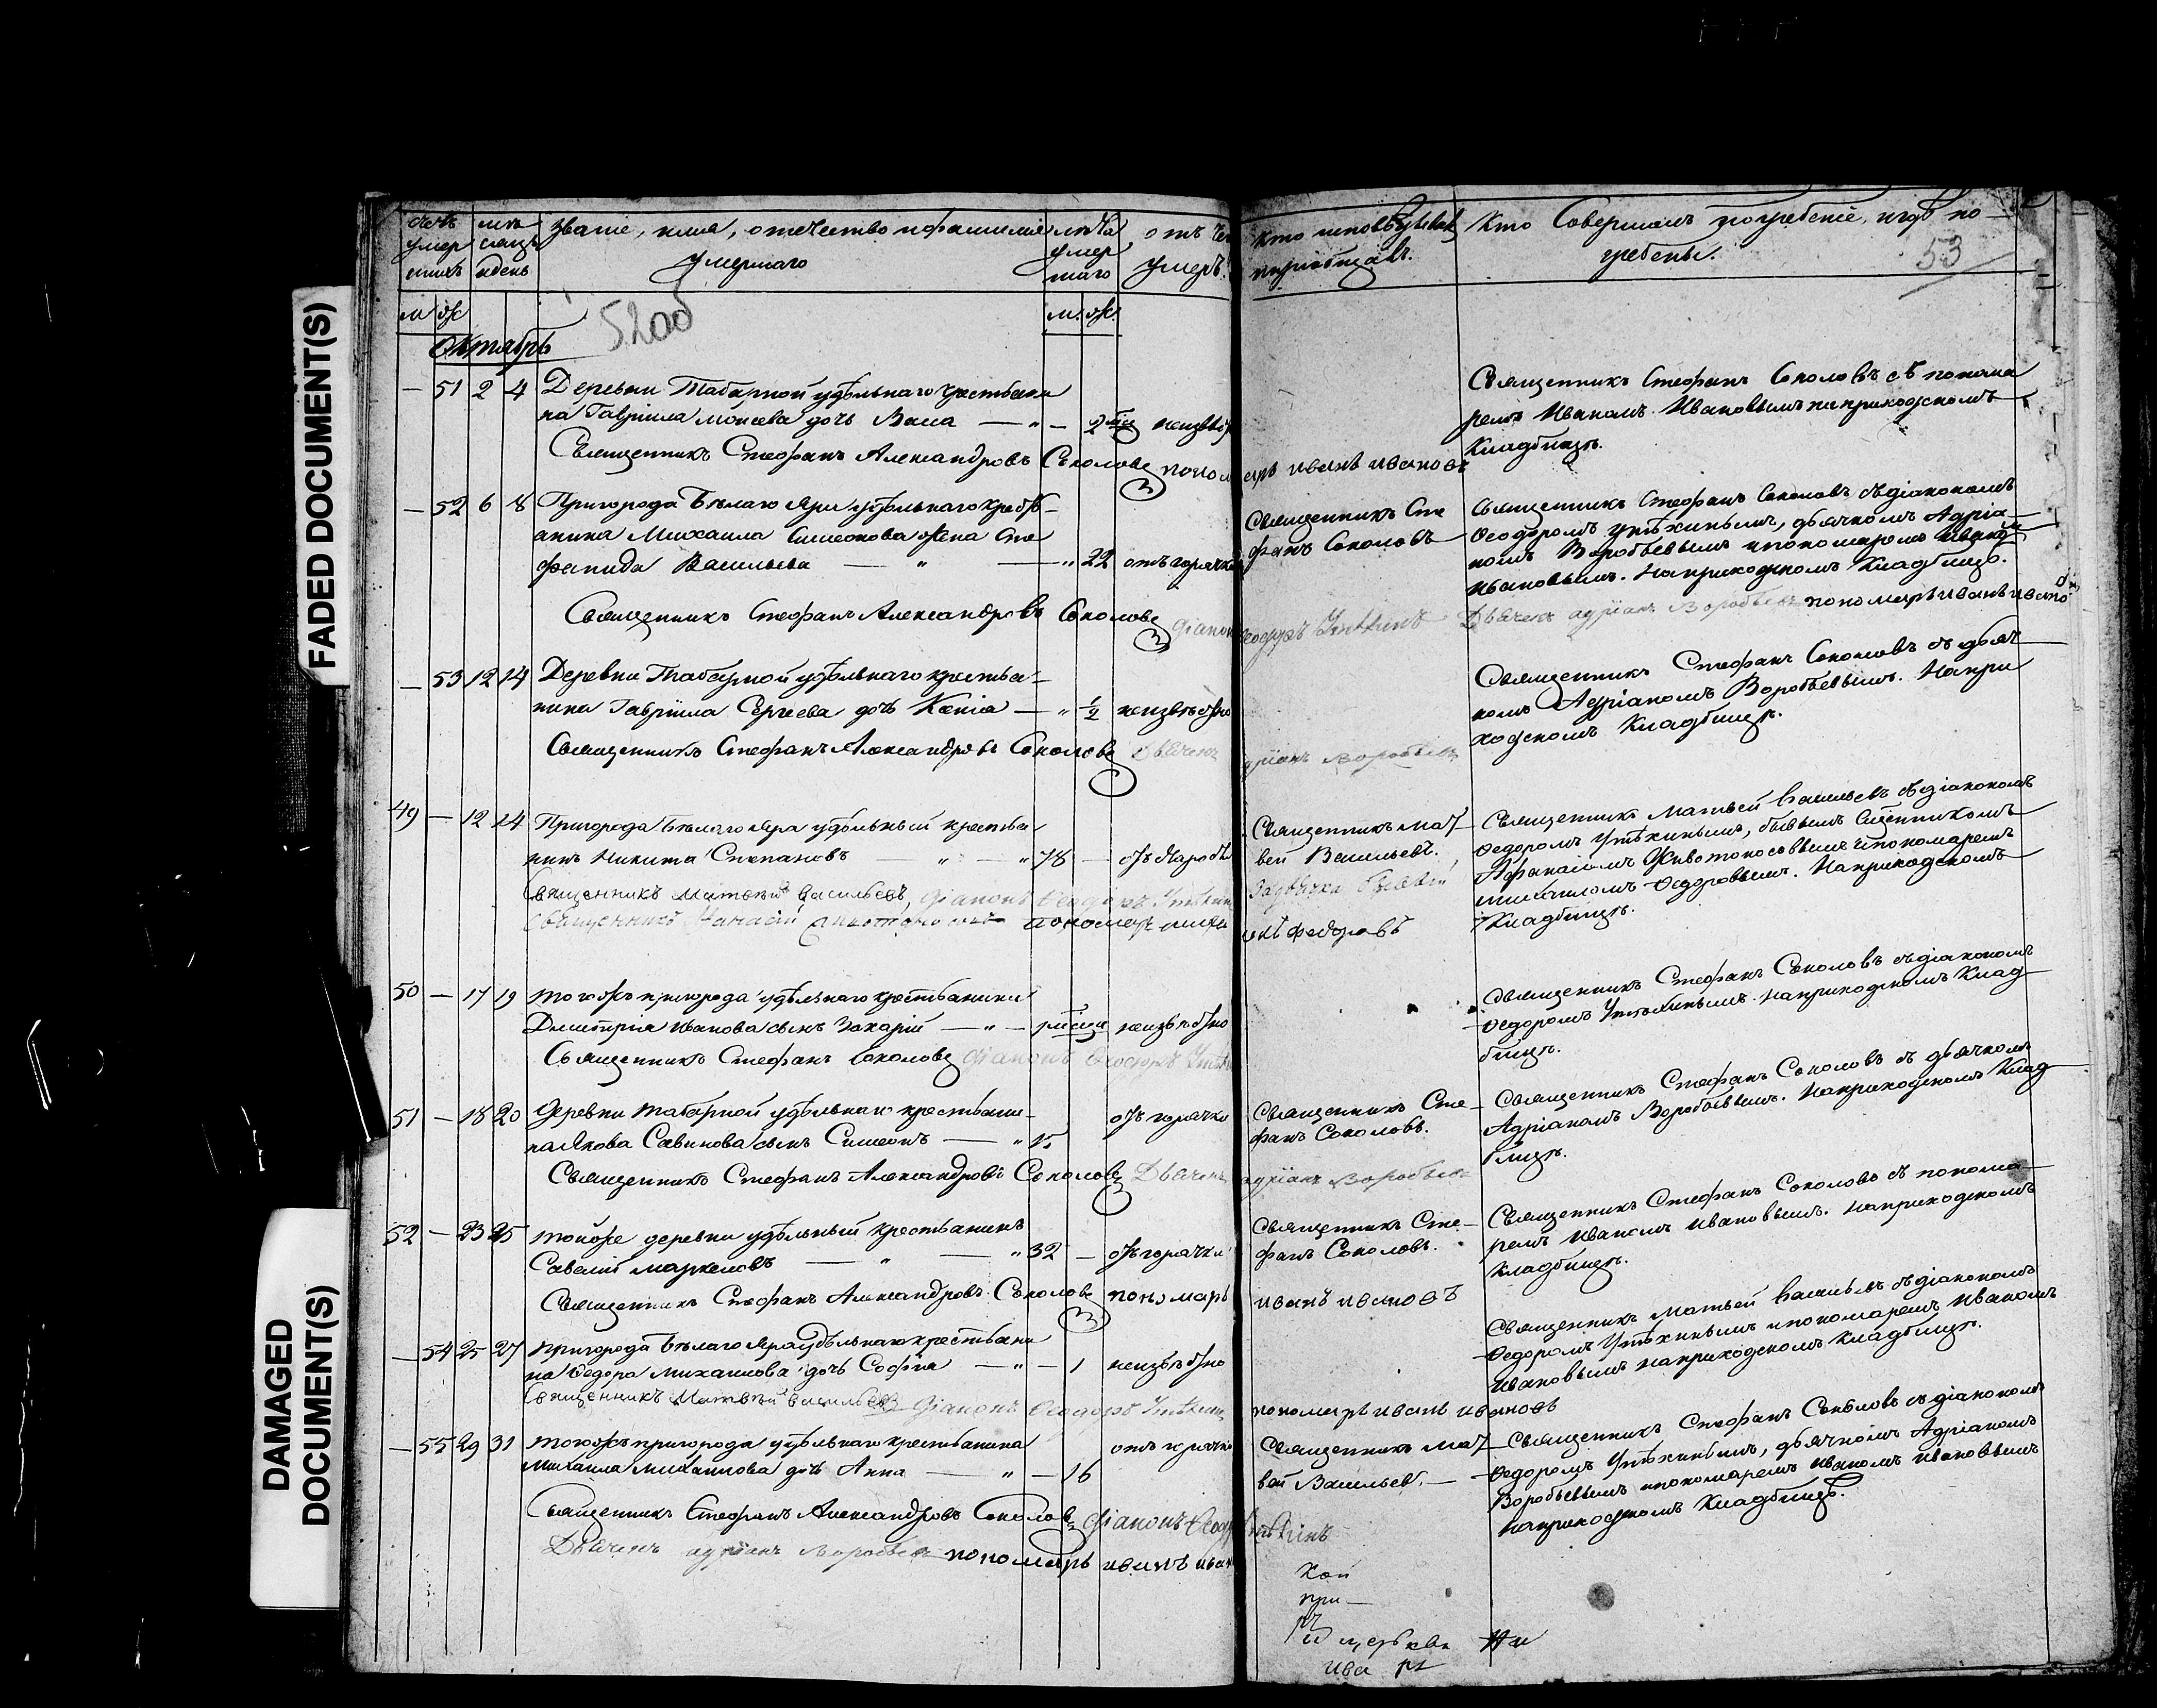 FADED DOCUMENT(S)
DAMAGED
DOCUMENT(S)
счетъ умер шихъ
мѣ сяцъ и день
званіе, имя, отечество и фамилія умершаго
лѣта умер шаго
отъ чего умеръ.
кто исповѣдывалъ и пріобщалъ.
Кто Совершалъ погребеніе, и гдѣ по-
гребены.
53
м ж м. ж.
52об
Октябрь
— 51 2 4 Деревни Табарной удѣльнаго крестьяни
на Гавріила Моисеева дочь Васса — " — 2 мца неизвѣстно
Священникъ Стефанъ Александровъ Соколовъ пономарь иванъ ивановъ
Священникъ Стефанъ Соколовъ съ понома
ремъ Иваномъ Ивановымъ на приходскомъ
Кладбищѣ.
— 52 6 8 Пригорода Бѣлаго Яра удѣльнаго крестья-
анина Михаила Симеонова жена Сте
фанида Васильева — " — " 22 отъ горячки
Священникъ Сте
фанъ Соколовъ
Священникъ Стефанъ Соколовъ съ діакономъ
Ѳеодоромъ Утѣхинымъ, дьячкомъ Адріа-
номъ Воробьевымъ и пономаремъ Иваномъ
Ивановымъ. На приходскомъ Кладбищѣ.
Священникъ Стефанъ Александровъ Соколовъ діаконъ Ѳеодоръ Утѣхинъ Дьячекъ адріанъ Воробьевъ пономарь иванъ ивано
— 53 12 14 Деревни Табарной удѣльнаго крестья-
нина Гавріила Сергеева дочь Ксенія — " 1/2 неизвѣстно
Священникъ Стефанъ Александровъ Соколовъ Дьячекъ адріанъ Воробьевъ
Священникъ Стефанъ Соколовъ съ дьяч
комъ Адріаномъ Воробьевымъ. На при
ходскомъ Кладбищѣ.
49 — 12 14 Пригорода Бѣлаго Яра удѣльный крестья
нинъ Никита Степановъ — " — " 78 — отъ старости
Священникъ Мат
вей Васильевъ.
Священникъ Матвей Васильевъ съ діакономъ
Ѳедоромъ Утѣхинымъ, бывшимъ Священникомъ
Афанасіемъ Животоносовымъ и пономаремъ
михаиломъ Ѳедоровымъ. На приходскомъ
Кладбищѣ.
Священникъ Матвѣй Васильевъ, діаконъ Ѳеодоръ Утѣхинъ
Священникъ пономарь михаилъ федоровъ
50 — 17 19 Тогожъ пригорода удѣльнаго крестьянина
Димитрія Иванова сынъ Захарій — " — неизвѣстно
Священникъ Стефанъ Соколовъ діаконъ Ѳеодоръ Утѣхинъ
Священникъ Стефанъ Соколовъ съ діакономъ
Ѳедоромъ Утѣхинымъ. На приходскомъ Клад-
бищѣ.
51 — 18 20 Деревни Табарной удѣльнаго крестьяни-
на Якова Савинова сынъ Симеонъ — " 15 отъ горячки
Священникъ Сте-
фанъ Соколовъ.
Священникъ Стефанъ Соколовъ съ дьячкомъ
Адріаномъ Воробьевымъ. На приходскомъ Клад
бищѣ.
Священникъ Стефанъ Александровъ Соколовъ Дьячекъ адріанъ Воробьевъ
52 — 23 25 Тойже деревни удѣльный крестьянинъ
Савелій Маркеловъ — " — " 32 — отъ горячки
Священникъ Сте-
фанъ Соколовъ.
Священникъ Стефанъ Соколовъ съ понома-
ремъ Иваномъ Ивановымъ. На приходскомъ
Кладбищѣ.
Священникъ Стефанъ Александровъ Соколовъ пономарь иванъ ивановъ
— 54 25 27 Пригорода Бѣлаго Яра удѣльнаго крестьяни
на Ѳедора Михаилова дочь Софія — " — 1 неизвѣстно
Священникъ Матвѣй Васильевъ діаконъ Ѳеодоръ Утѣхинъ пономарь иванъ ивановъ
Священникъ Матвей Васильевъ съ діакономъ
Ѳедоромъ Утѣхинымъ и пономаремъ Иваномъ
Ивановымъ на приходскомъ Кладбищѣ.
— 55 29 31 Тогожъ пригорода удѣльнаго крестьянина
Михаила Михаилова дочь Анна — " — 16 отъ горячки
Священникъ Мат
вей Васильевъ. —
Священникъ Стефанъ Соколовъ съ діакономъ
Ѳедоромъ Утѣхинымъ, дьячкомъ Адріаномъ
Воробьевымъ и пономаремъ Иваномъ Ивановымъ
на приходскомъ Кладбищѣ.
Священникъ Стефанъ Александровъ Соколовъ діаконъ Ѳеодоръ Утѣхинъ
Дьячекъ адріанъ Воробьевъ пономарь иванъ иван
Кой
при —
церкви
ива